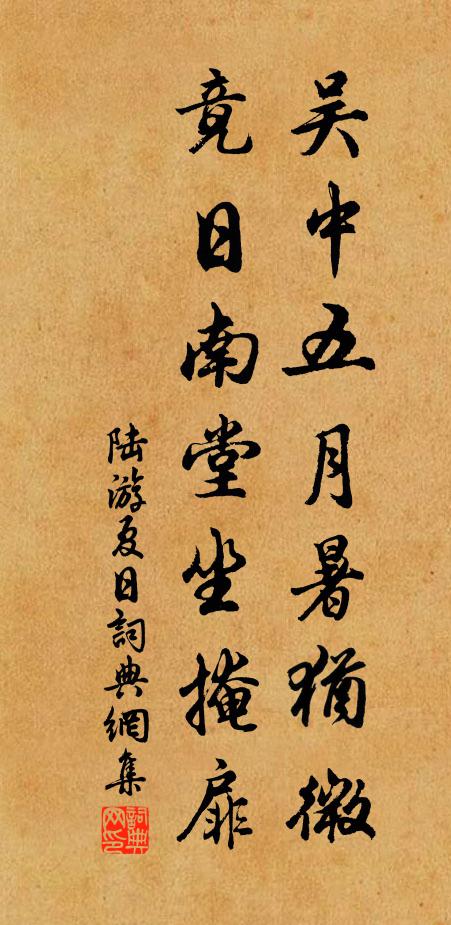 吴中五月暑猶微
竟日南堂坐掩扉
陆游夏日詞典網集
詞典网印